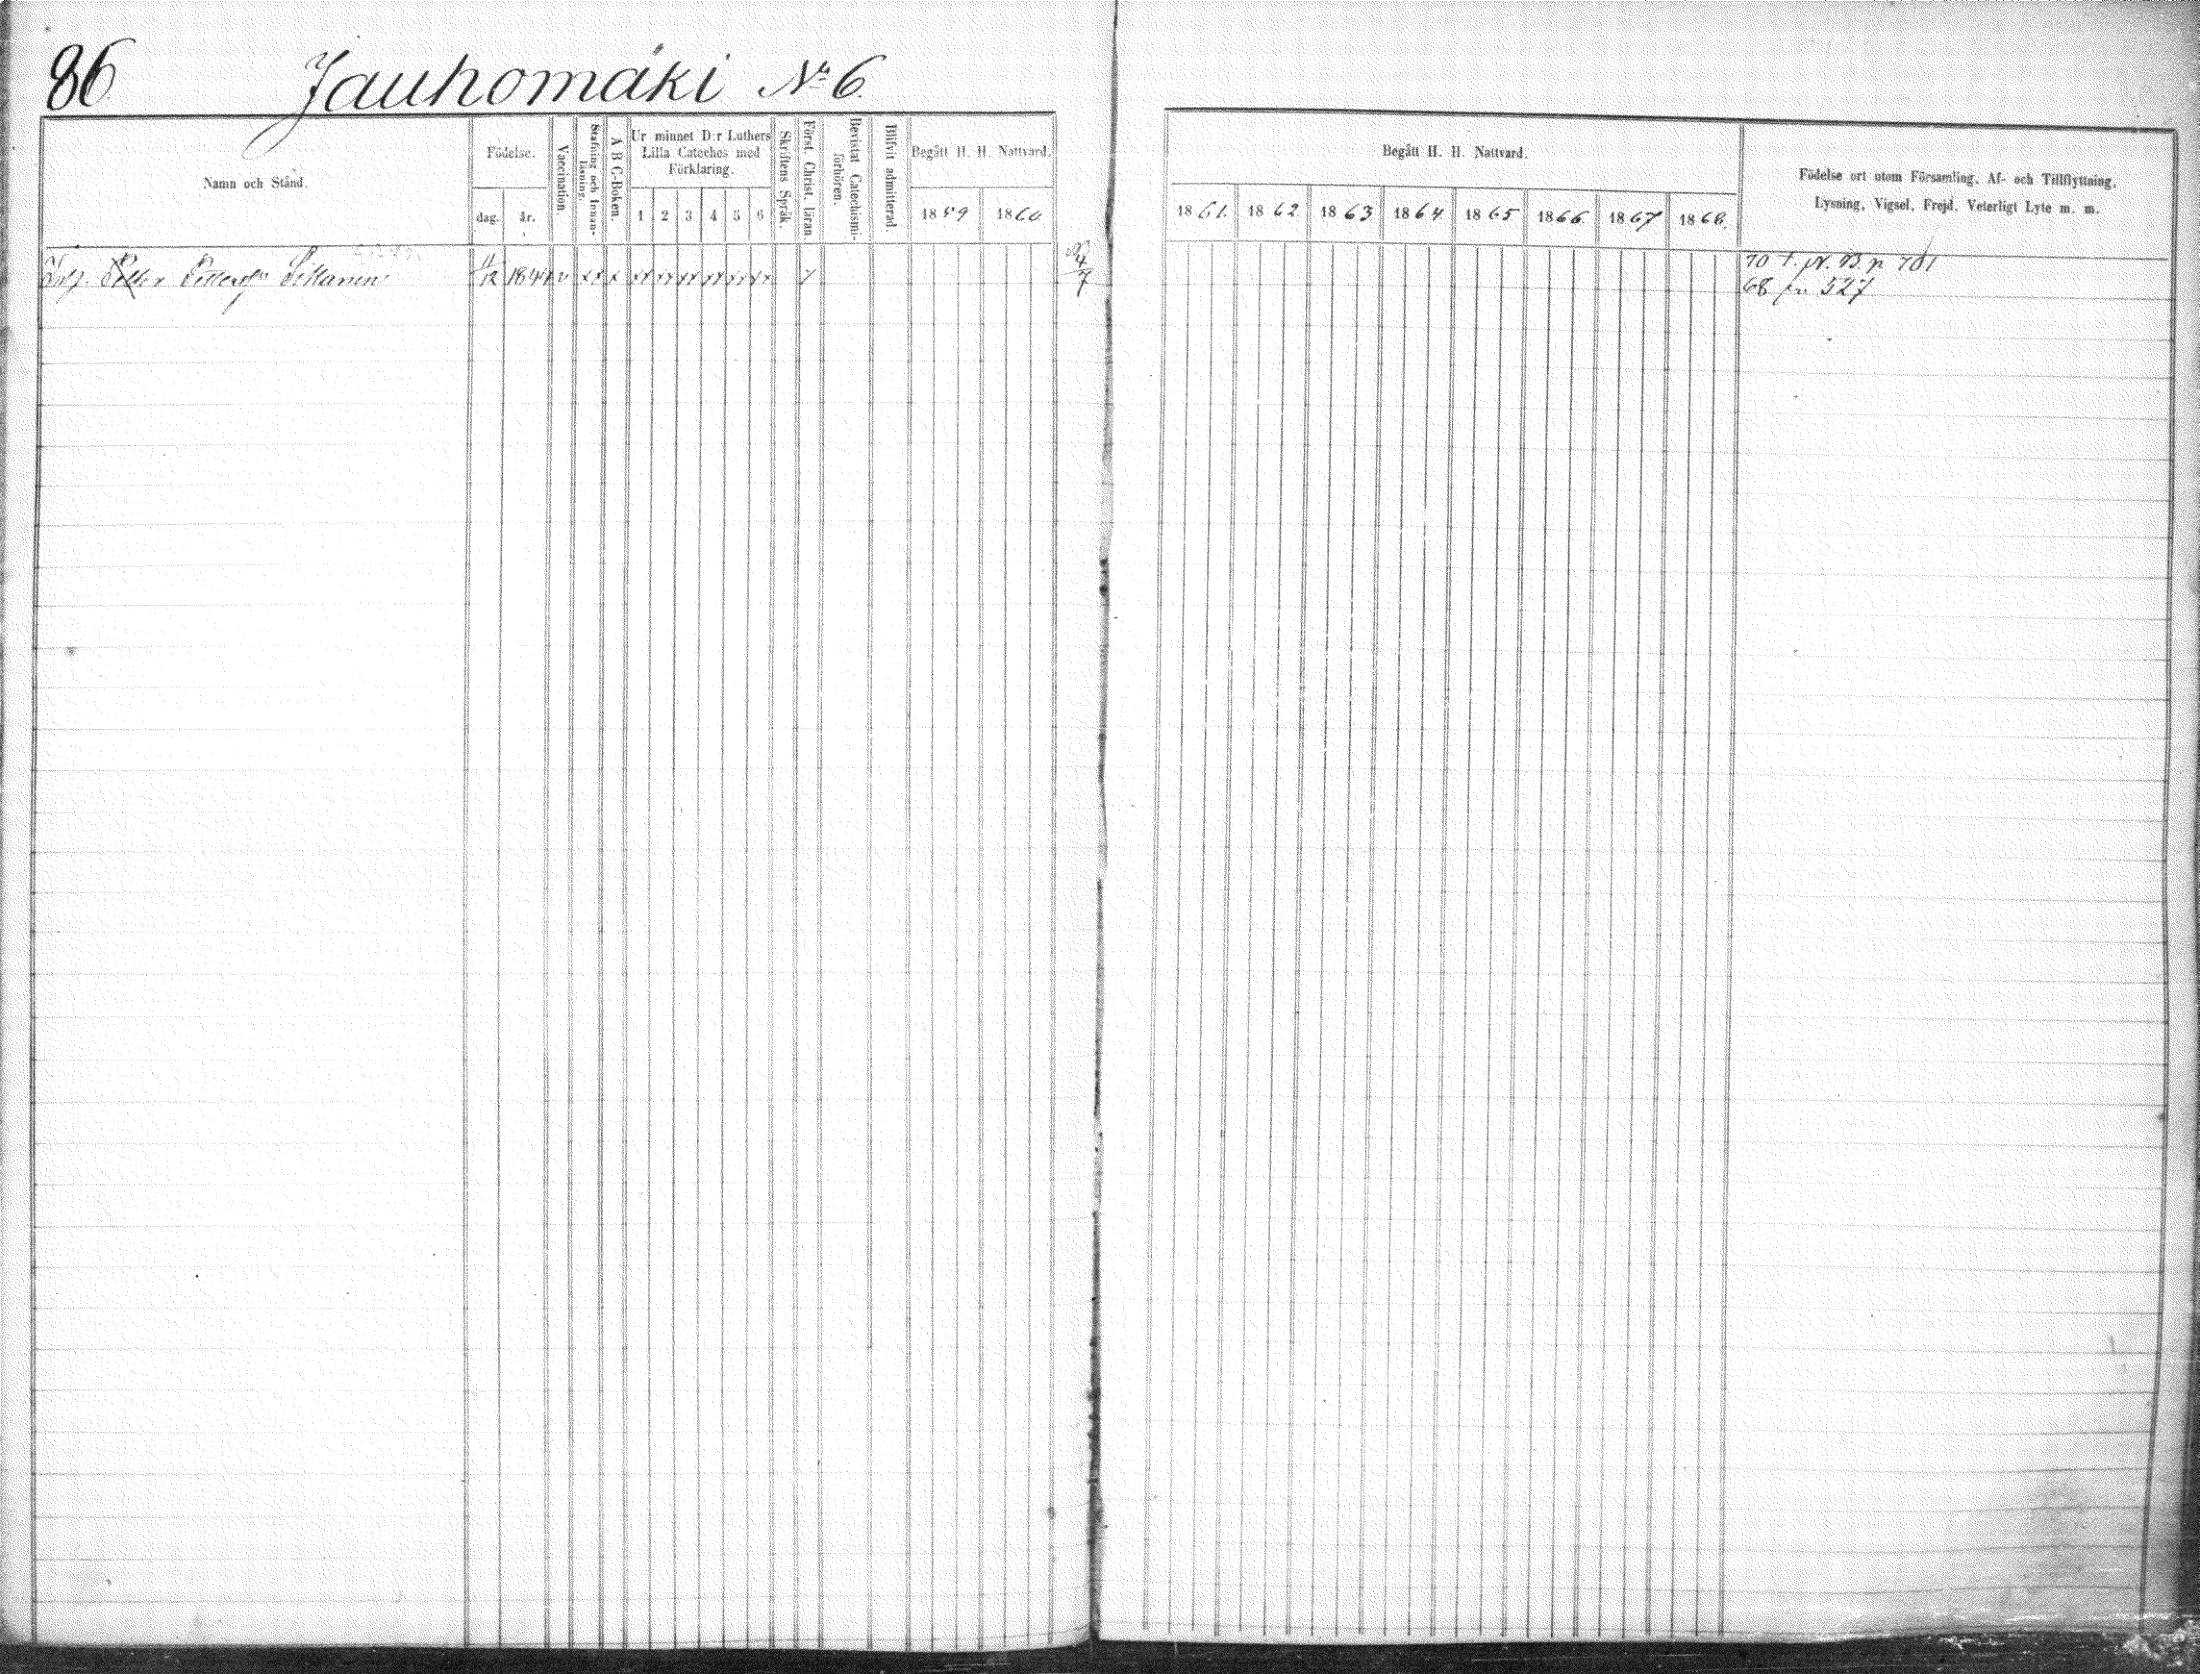 86 Jauhomäki No 6.
Namn och Stånd.
Födelse.
dag.
år.
Vaccination.
Stafning och Innan-
läsning.
A B C-Boken.
Ur minnet D:r Luthers
Lilla Cateches med
Förklaring.
1 2 3 4 5 6
Skriftens Språk.
Först. Christ. läran
Bevistat Catechismi-
förhören.
Blifvit admitterad.
Begått H. H. Nattvard.
1859 1860
Begått H. H. Nattvard.
1861. 1862 1863 1864 1865 1866 1867 1868.
Födelse ort utom Församling, Af- och Tillflyttning,
Lysning, Vigsel, Frejd, Veterligt Lyte m. m.
Petter
12 184
4
7
70 f. N. B. p 701
68 fr. 527